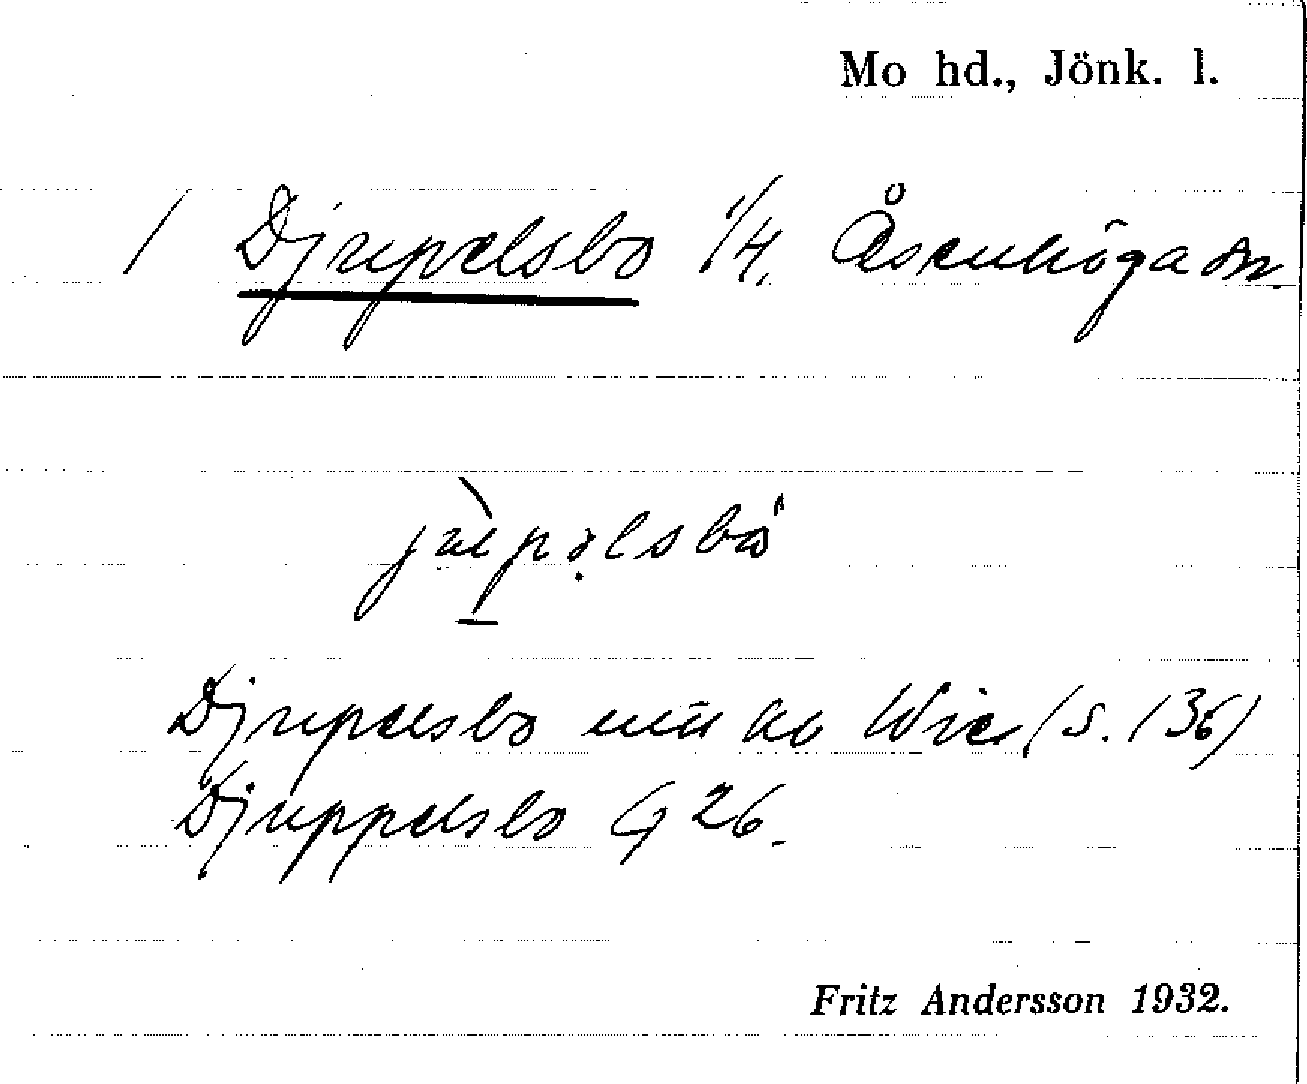 Mo hd., Jönk. l.
1 Djupelsbo 1/4. Åsenhöga sn.
Djupelsbo Wie (s. 136)
Djuppelsbo G 26.
Fritz Andersson 1932.